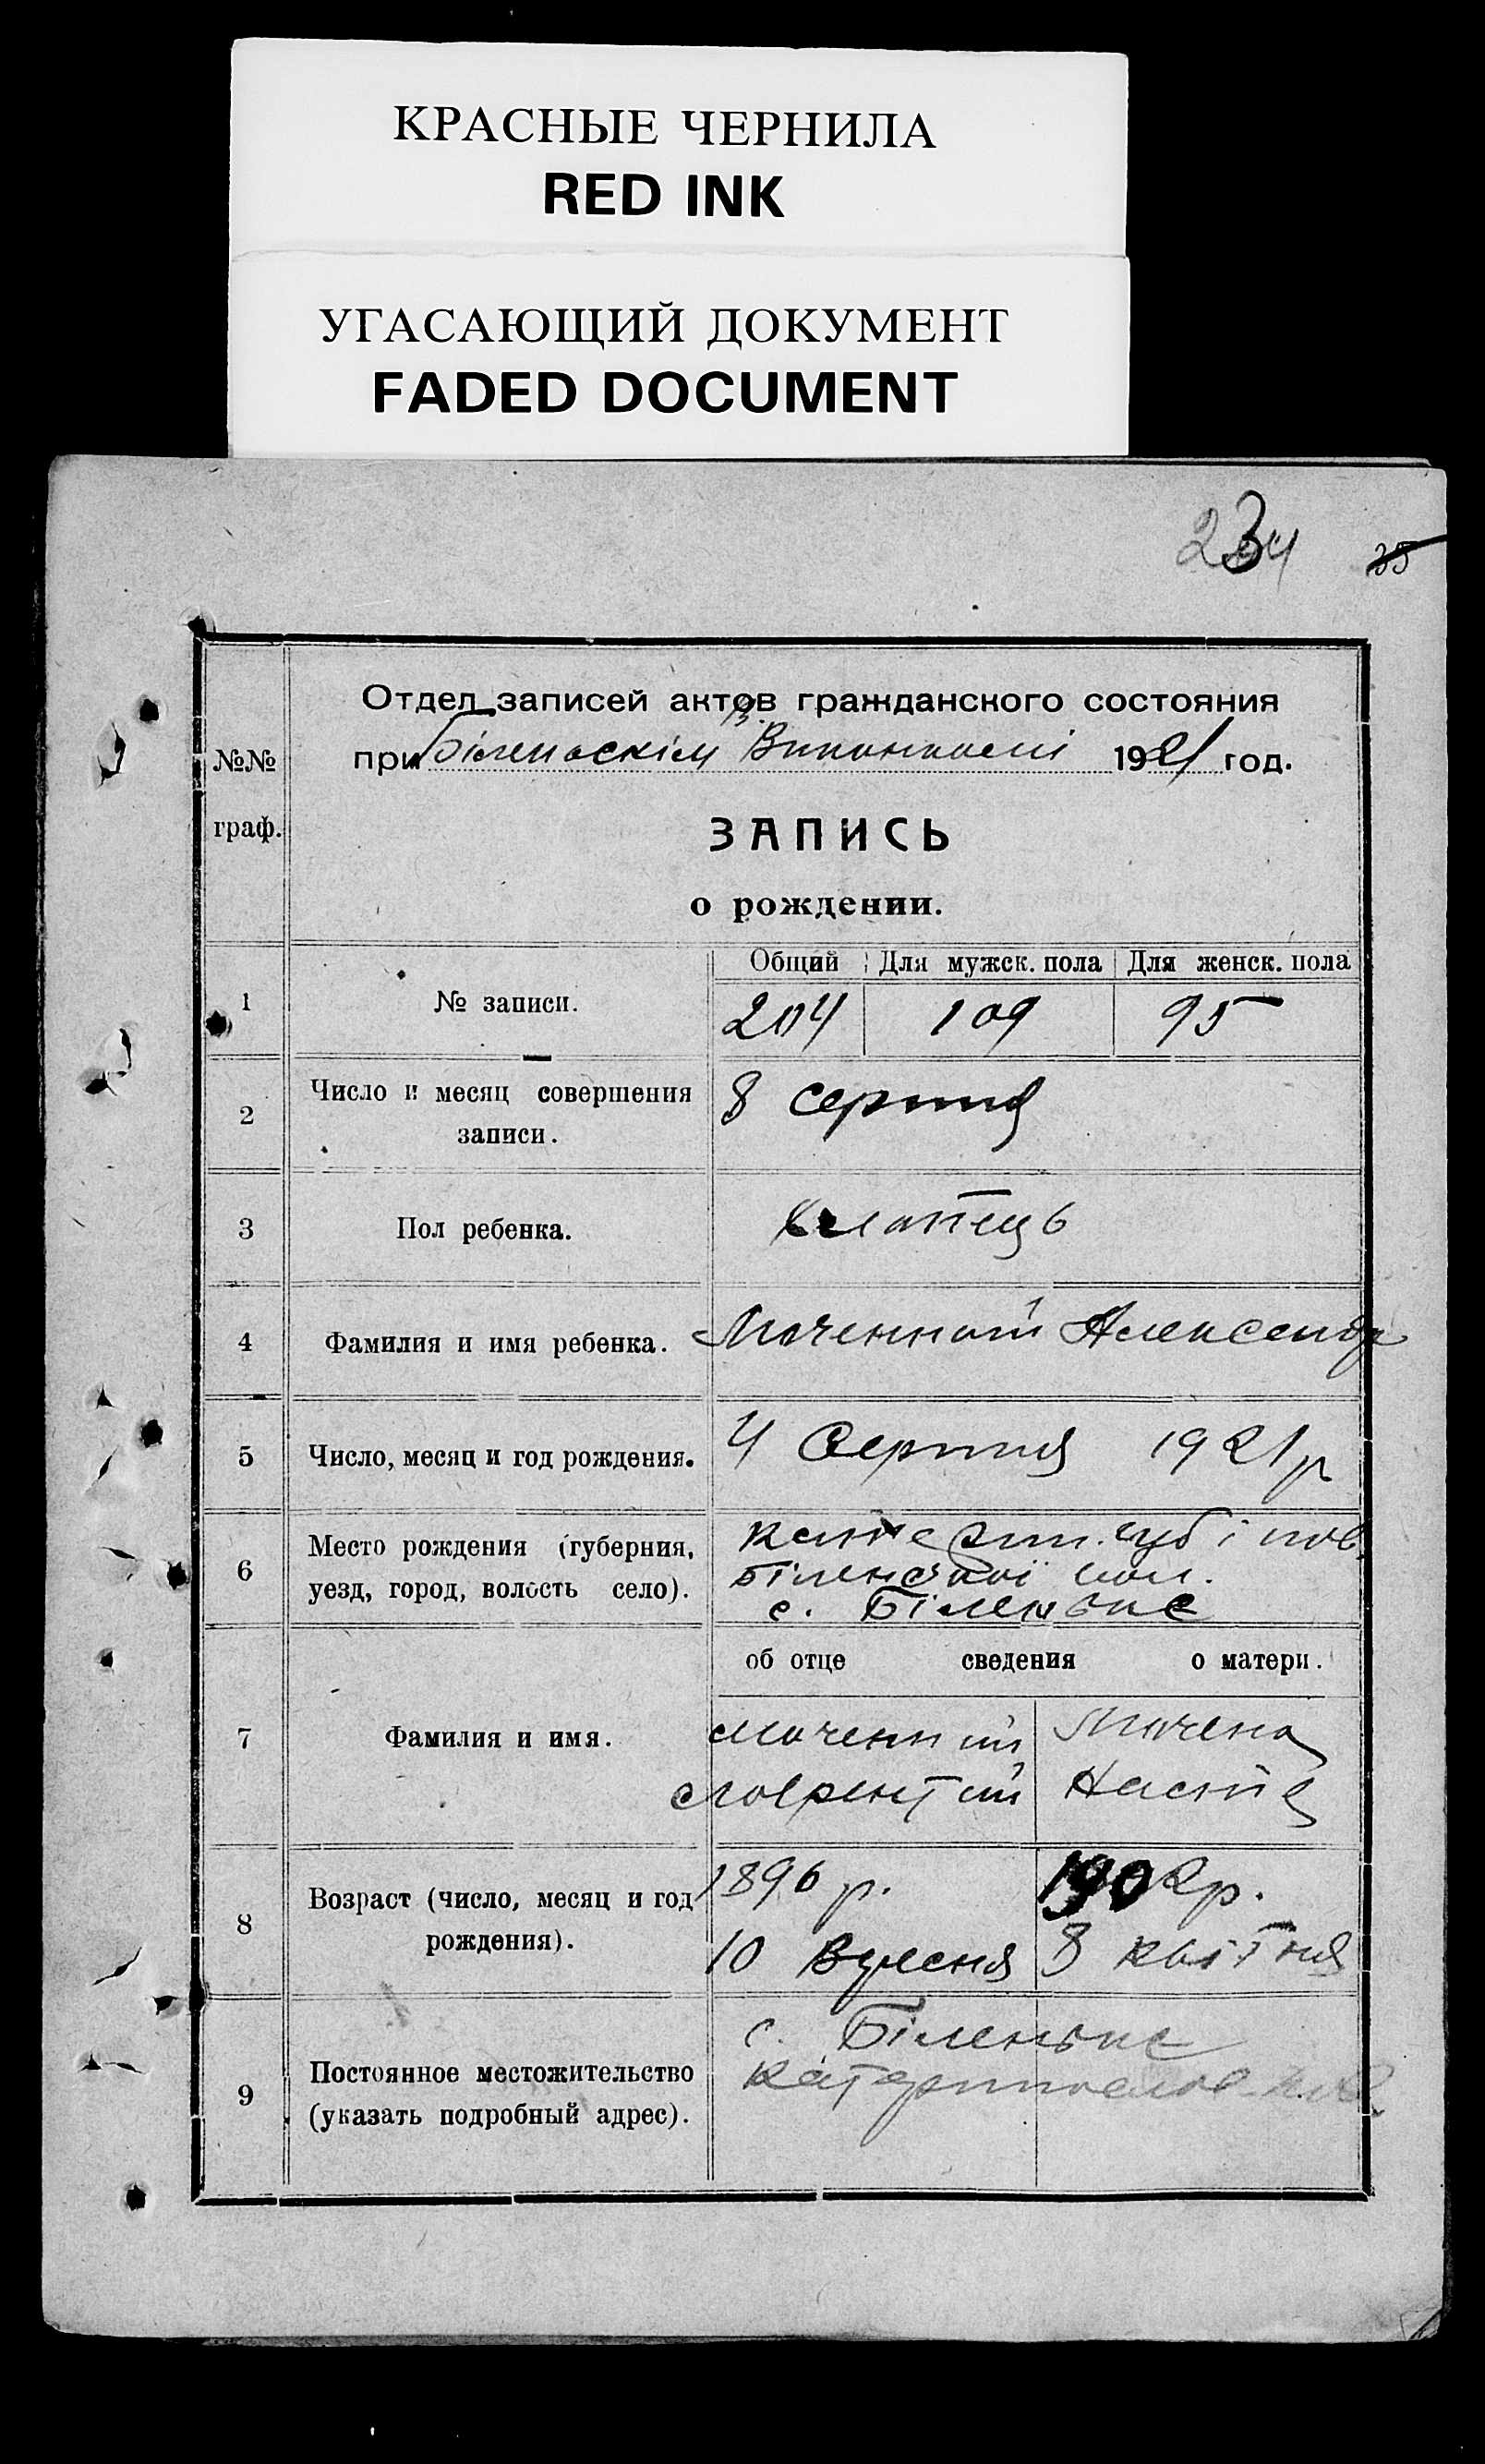 КРАСНЫЕ ЧЕРНИЛА
RED INK
УГАСАЮЩИЙ ДОКУМЕНТ
FADED DOCUMENT
234 35
№№ граф.
Отдел записей актов гражданского состояния
при Біленьскім В. Виконкомі 1921 год.
ЗАПИСЬ
о рождении.
Общий Для мужск. пола Для женск. пола
1 № записи. 204 109 95
2 Число и месяц совершения записи. 8 серпня
3 Пол ребенка. хлопець
4 Фамилия и имя ребенка. Моченний Александр
5 Число, месяц и год рождения. 4 Серпня 1921 р
6 Место рождения (губерния, уезд, город, волость село). губ і пов.
Біленської вол.
с. Біленьке
об отце сведения о матери.
7 Фамилия и имя. Моченний Мочена
Лаврентий Настя
8 Возраст (число, месяц и год рождения). 1896 р. 1902 р.
10 Вересня 8 квітня
9 Постоянное местожительство (указать подробный адрес). с. Біленьке